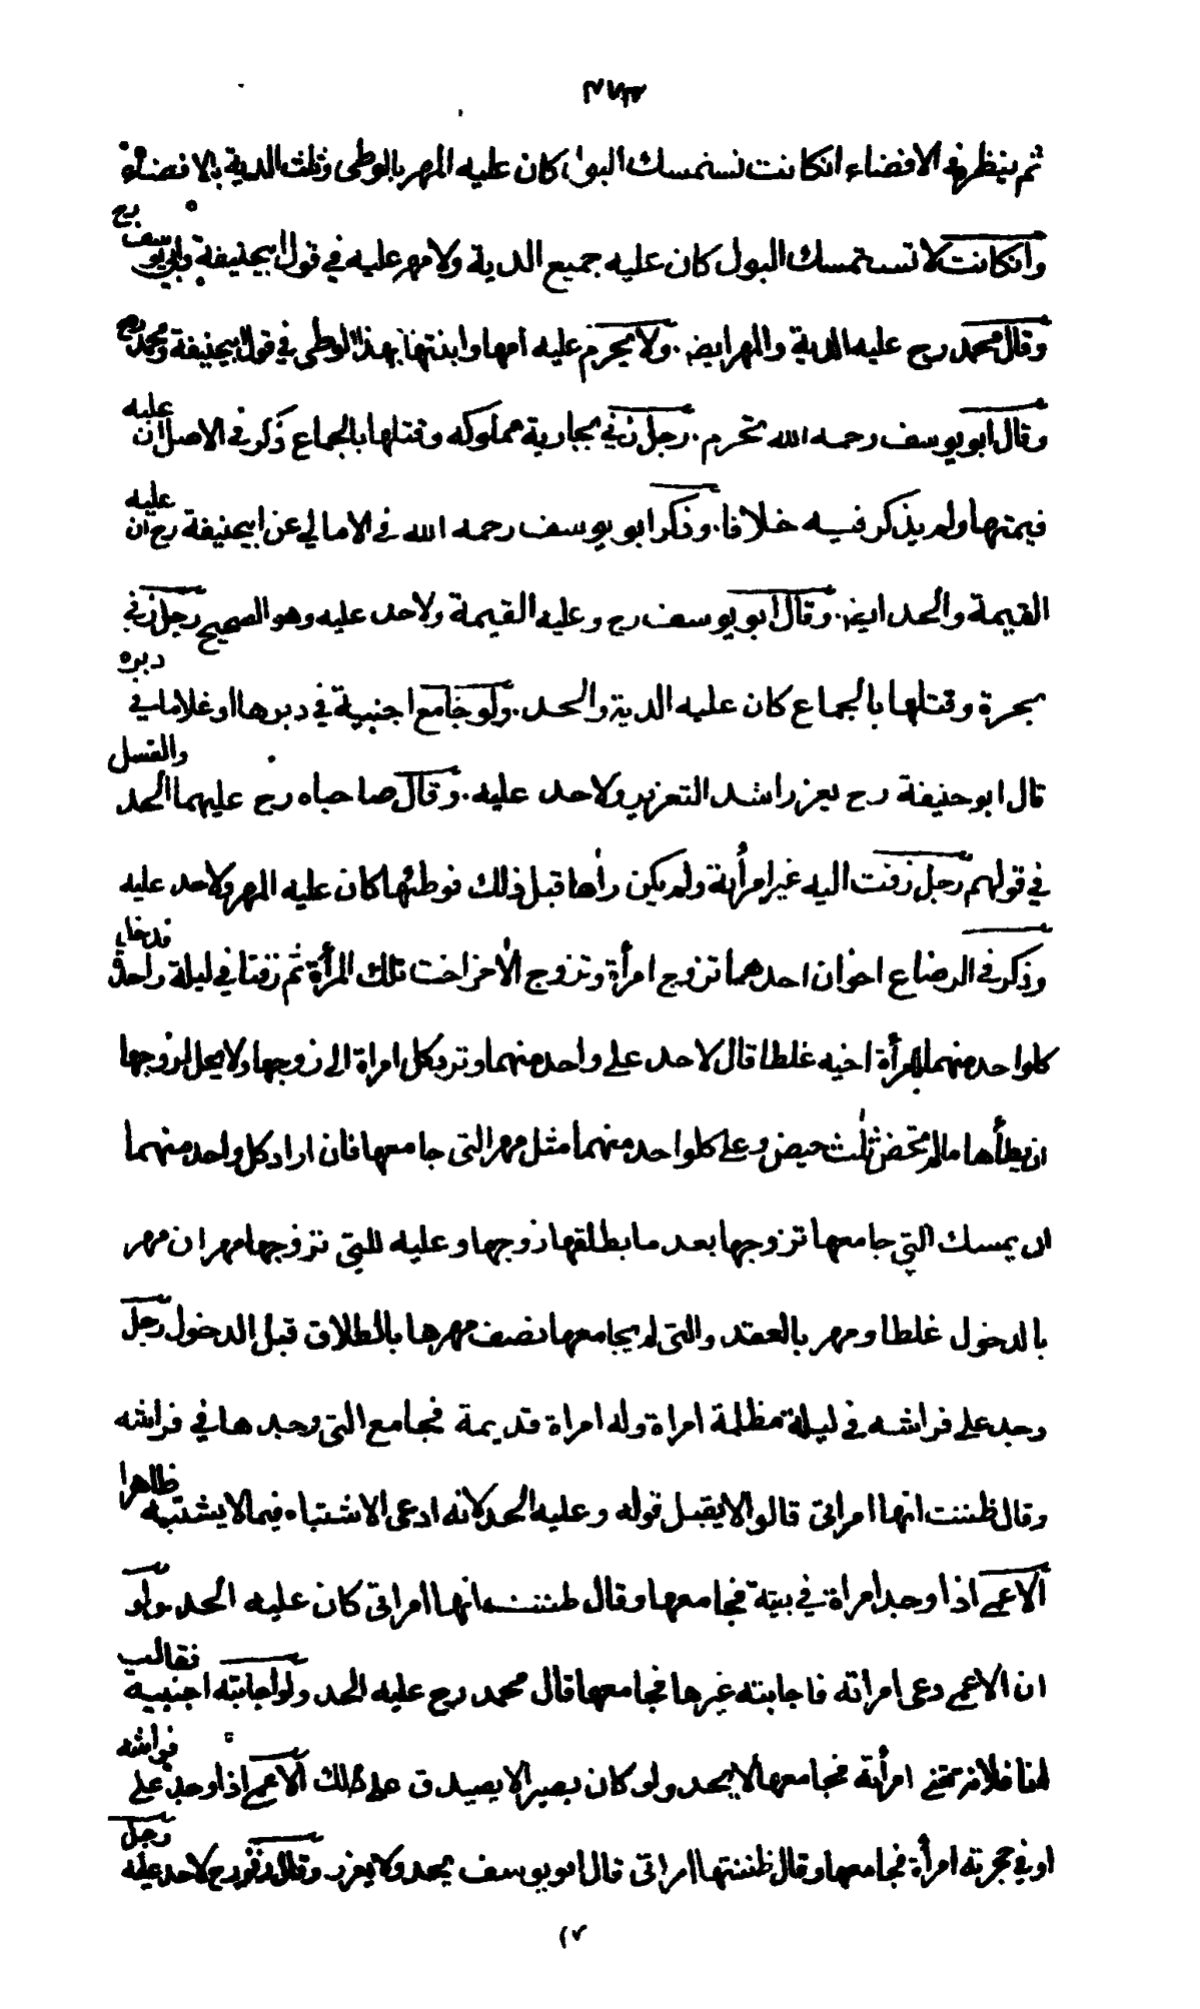 ثم ينظر في الافضاء انكانت تستمسك البول كان عليه المهر بالوطى وثلث الدية بالافضاء
وانكانت لا تستمسك البول كان عليه جميع الدية ولا مهر عليه في قول ابيحنيفة وابي يوسف رح
وقال محمد رح عليه الدية والمهر ايضا ولا يحرم عليه امها وابنتها بهذا الوطى في قول ابيحنيفة ومحمد رح
وقال ابو يوسف رحمه الله تحرم رجل زنى بجارية مملوكه وقتلها بالجماع ذكر في الاصل ان عليه
قيمتها ولم يذكر فيه خلافا وذكر ابو يوسف رحمه الله في الامالي عن ابيحنيفة رح ان عليه
القيمة والحد ايضا وقال ابو يوسف رح وعليه القيمة ولا حد عليه وهو الصحيح رجل زنى
بحرة وقتلها بالجماع كان عليه الدية والحد ولو جامع اجنبية في دبرها او غلاما في دبره
قال ابو حنيفة رح يعزر اشد التعزير ولا حد عليه وقال صاحباه رح عليهما الحد والغسل
في قولهم رجل زفت اليه غير امرأته ولم يكن رأها قبل ذلك فوطئها كان عليه المهر ولا حد عليه
وذكر في الرضاع اخوان احدهما تزوج امرأة وتزوج الأخر اخت تلك المرأة ثم زفتا في ليلة واحدة فدخل
كلواحد منهما بامرأة اخيه غلطا قال لا حد على واحد منهما وترد كل امراة الى زوجها ولا يحل لزوجها
ان يطأها مالم تحض ثلث حيض وعلى كلواحد منهما مثل مهر التي جامعها فان اراد كل واحد منهما
ان يمسك التي جامعها تزوجها بعد ما يطلقها زوجها وعليه للتي تزوجها مهران مهر
بالدخول غلطا ومهر بالعقد والتي لم يجامعها نصف مهرها بالطلاق قبل الدخول رجل
وجد على فراشه في ليلة مظلمة امراة وله امراة قديمة فجامع التي وجدها في فراشه
وقال ظننت انها امراتي قالوا لا يقبل قوله وعليه الحد لانه ادعى الاشتباه فيما لا يشتبه ظاهرا
الاعمى اذا وجد امراة في بيته فجامعها وقال ظننت انها امراتي كان عليه الحد ولو
ان الاعمى دعى امراته فاجابته غيرها فجامعها قال محمد رح عليه الحد ولو اجابته اجنبية فقالت
انا فلانة امرأته فجامعها لا يحد ولو كان بصيرا لا يصدق على ذلك الاعمى اذا وجد على فراشه
او في حجرته امرأة فجامعها وقال ظننتها امراتي قال ابو يوسف يحد ولا يعزر وقال زفر رح لا حد عليه رجل